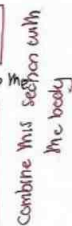 me
combine this section with
the body